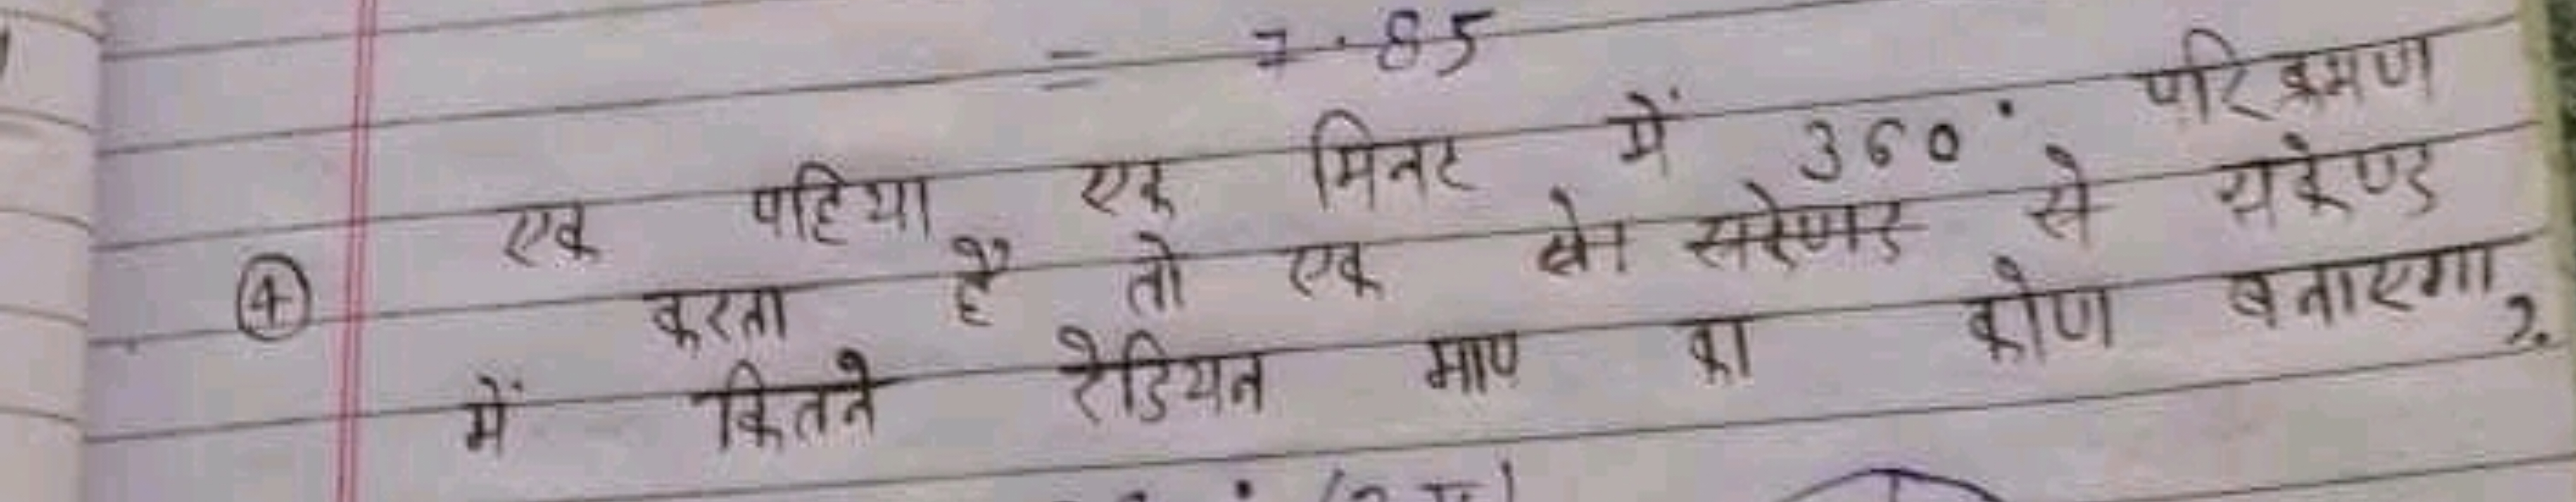 = 7.85
④ एक पहिया एक मिनट में 360° परिक्रमण
करता है तो एक से सकेण्ड
में कितने रेडियन माप का कोण बनाएगा?